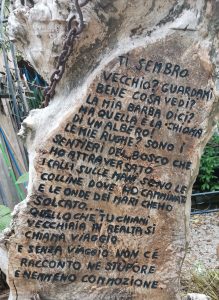 TI SEMBRO
VECCHIO? GUARDAMI
BENE COSA VEDI?
LA MIA BARBA DICI?
MI QUELLA È LA CHIOMA
DI UN ALBERO!
LE MIE RUGHE? SONO I
SENTIERI DEL BOSCO CHE
HO ATTRAVERSATO
I CALLI SULLE MANI SONO LE
COLLINE DOVE HO CAMMINATO
E LE ONDE DEI MARI CHE HO
SOLCATO.
QUELLO CHE TU CHIAMI
VECCHIAIA IN REALTÀ SI
CHIAMA VIAGGIO
E SENZA VIAGGIO NON C'È
RACCONTO NÉ STUPORE
E NEMMENO COMMOZIONE.